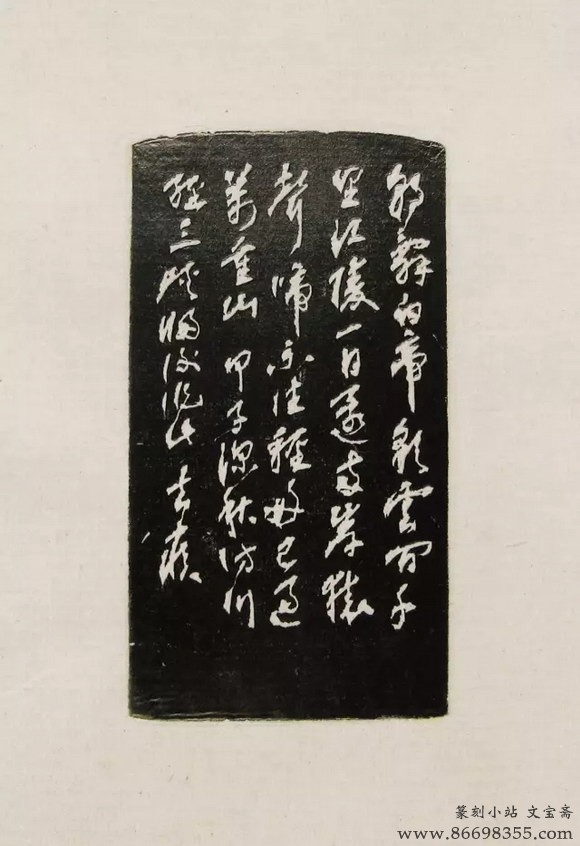 朝辭白帝彩雲間千
里江陵一日還兩岸猿
聲啼不住輕舟已過
萬重山 甲子深秋訪川
經三峽歸後此 去疾
篆刻小站 文宝斋
www.86698355.com